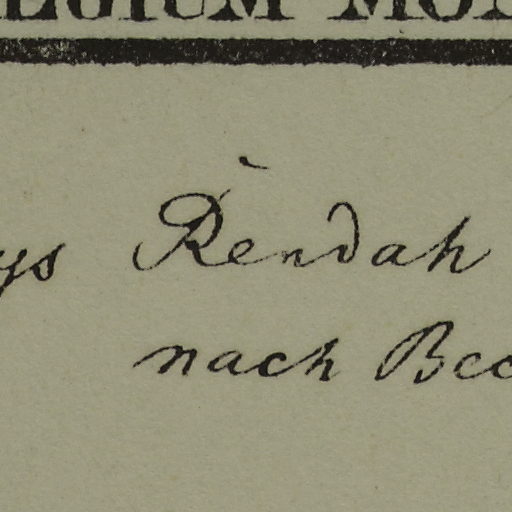 EGIUM MON
ys Rendah
nach Bec